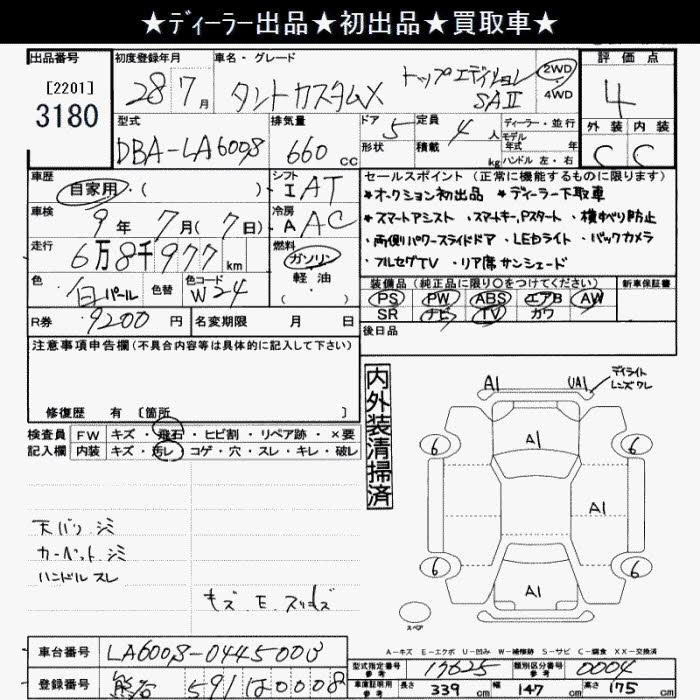 ★ディーラー出品★初出品★買取車★
出品番号
[2201]
3180
初度登録年月
28年7月
車名・グレード
タントカスタムX トップエディション SAⅡ
2WD
4WD
評価点
4
外装 内装
C C
型式
DBA-LA600S
排気量
660 cc
ドア 5
形状
定員 4 人
積載 kg
ディーラー・並行
モデル年式 年
ハンドル 左・右
車歴
自家用・( )
シフト
IAT
車検
9年7月(7日)
冷房
AAC
走行
6万8千977 km
燃料
ガソリン
軽油
・( )
色
白パール
色替
色コード
W24
R券 9200 円
名変期限 月 日
セールスポイント (正常に機能するものに限ります)
★オークション初出品 ★ディーラー下取車
★スマートアシスト・スマートキー,Pスタート・横すべり防止
・両側パワースライドドア・LEDライト・バックカメラ
・フルセグTV・リア席サンシェード
装備品(純正品に限り○をつけてください)
新車保証書
PS PW ABS エアB AW
SR ナビ TV カワ
後日品
注意事項申告欄(不具合内容等は具体的に記入して下さい)
修復歴 有 〔箇所 〕
検査員 FW キズ・飛石・ヒビ割・リペア跡・×要
記入欄 内装 キズ・汚レ・コゲ・穴・スレ・キレ・破レ
天バリ シミ
カーペット シミ
ハンドル スレ
キズ.E.スリキズ
内外装清掃済
A1 UA1
デイライト
レンズワレ
A1
6 6
A1
6 6
A1
スペア
A-キズ E-エクボ U-凹み W-補修跡 S-サビ C-腐食 XX-交換済
車台番号 LA600S-0445000
登録番号 熊谷 591 は 0008
型式指定番号 参考 17625
類別区分番号 参考 0004
車庫証明用 参考 長さ 339 cm 幅 147 cm 高さ 175 cm